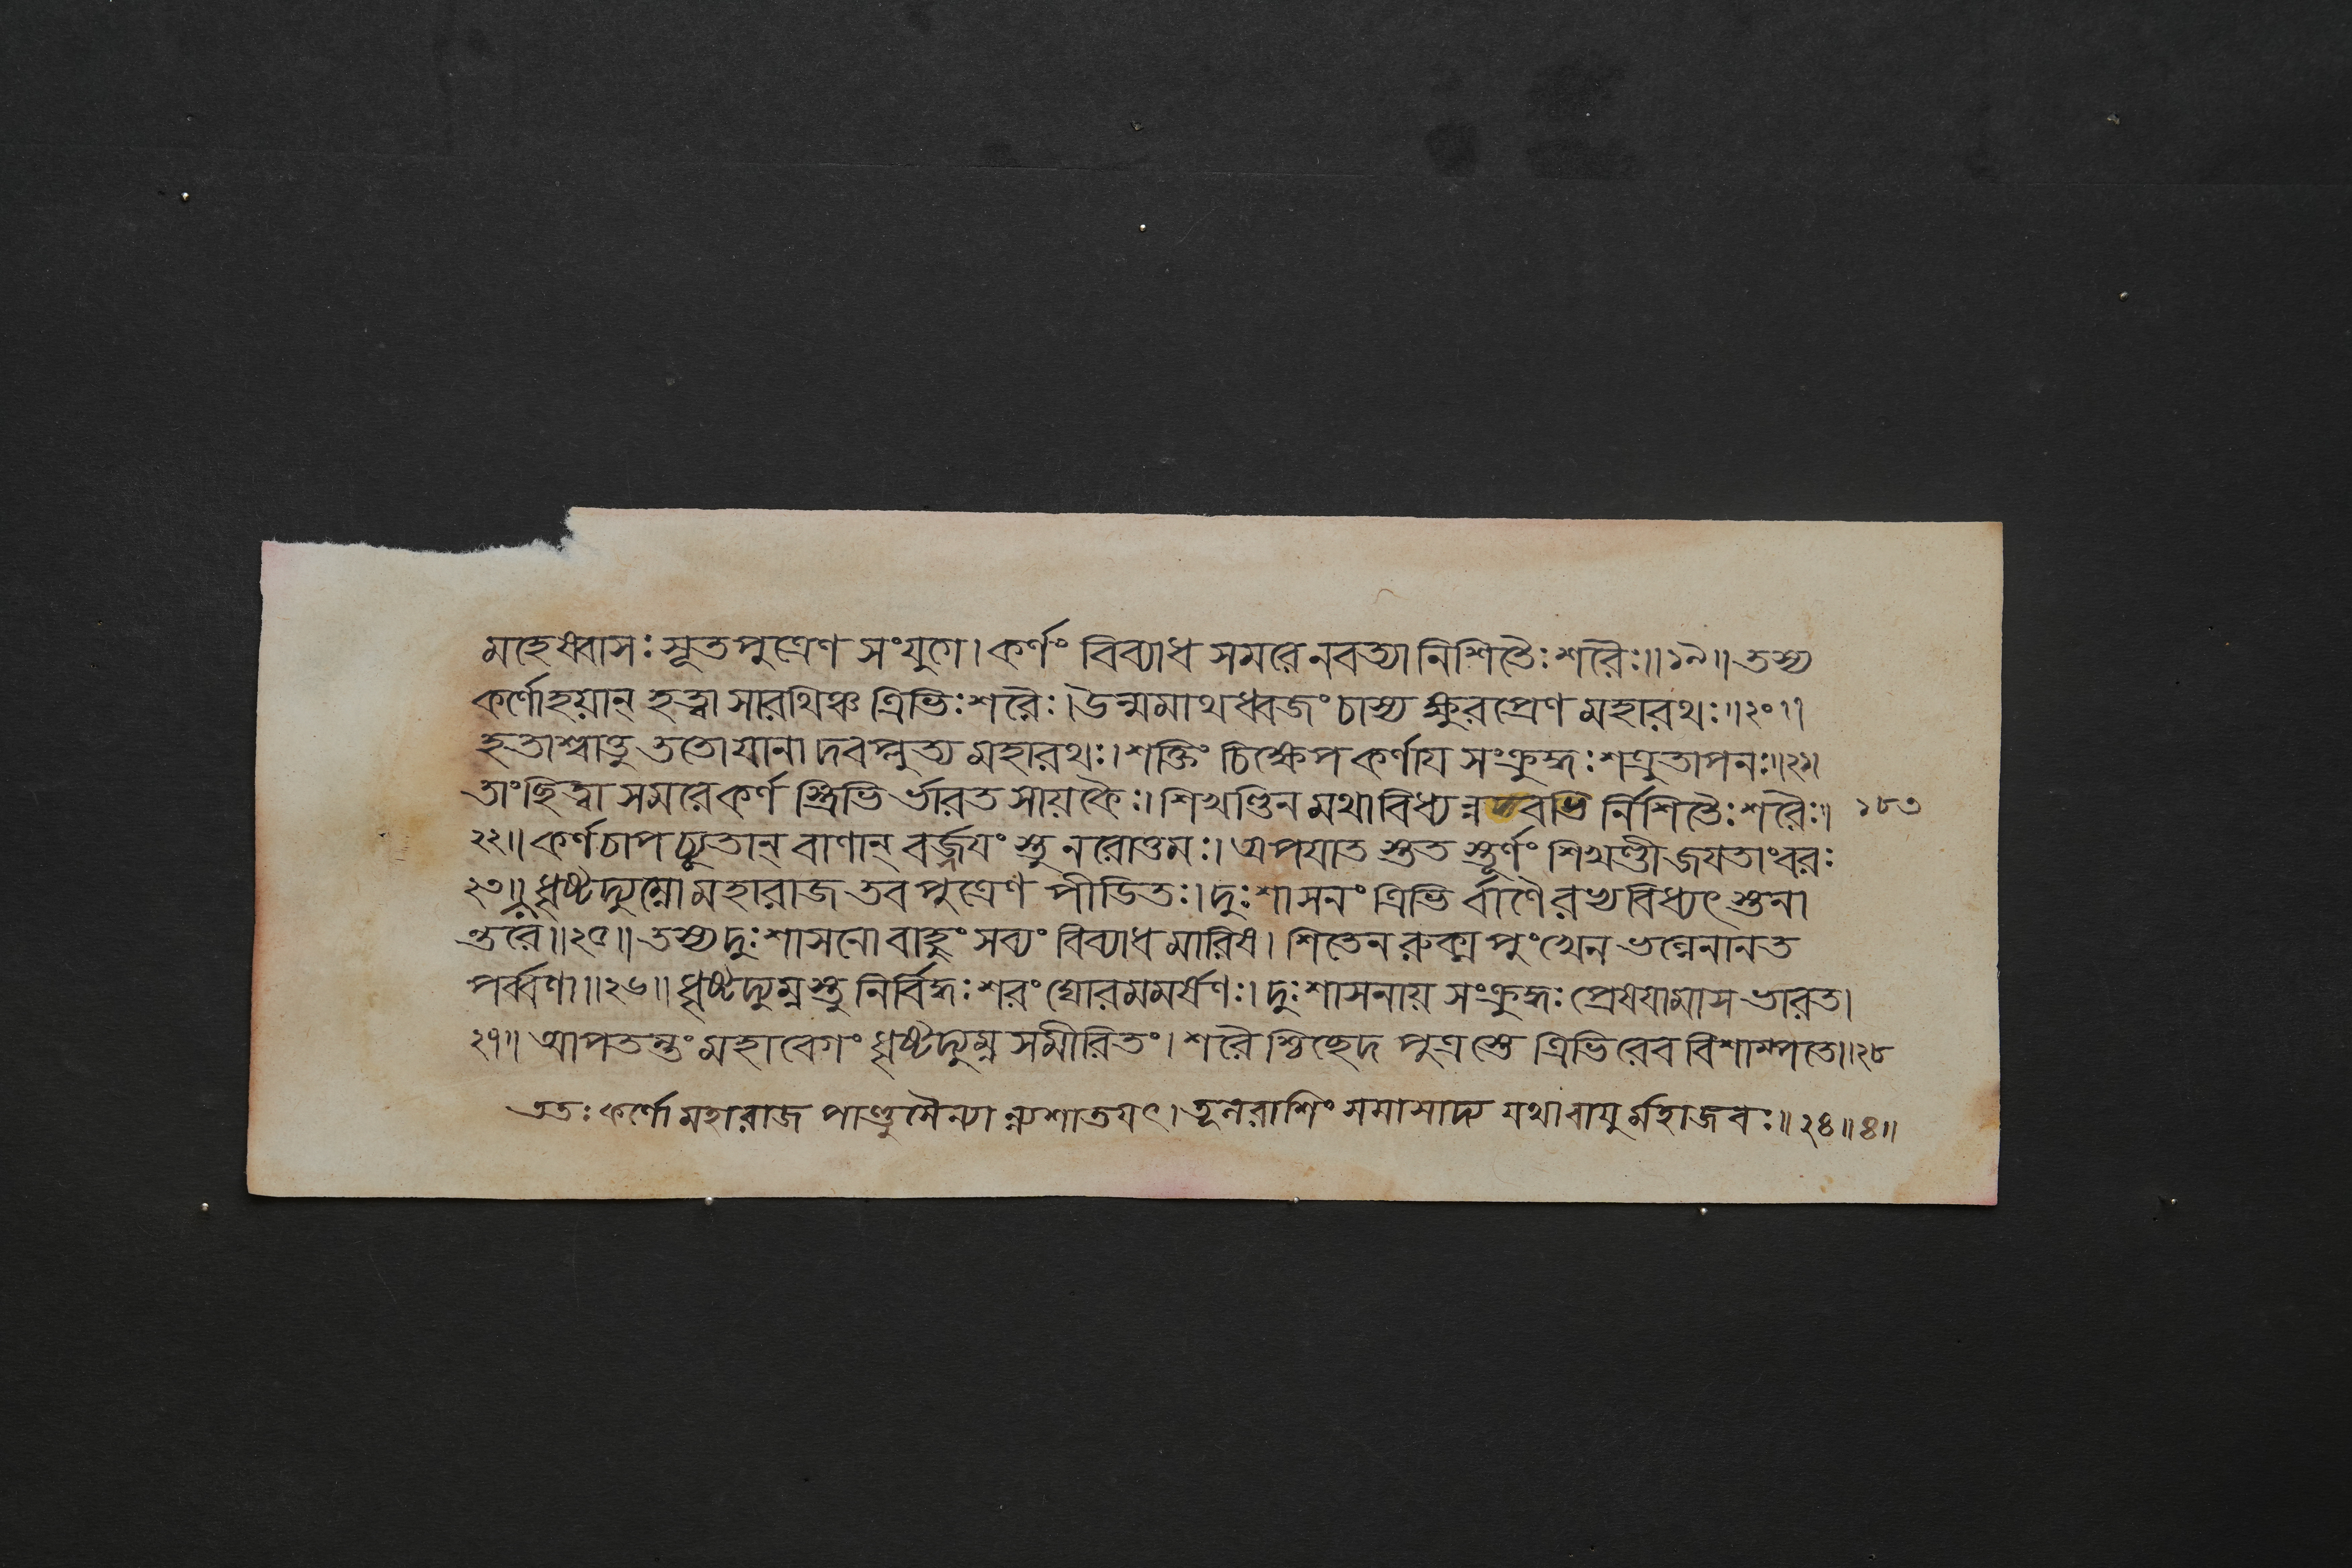 মহেষ্বাসঃ সূতপুত্রেণ সংযুগে। কর্ণং বিব্যাধ সমরে নবত্যা নিশিতৈঃ শরৈঃ॥১৯॥ তস্য
কর্ণো হয়ান্ হত্বা সারথিঞ্চ ত্রিভিঃ শরৈঃ। উন্মমাথ ধ্বজং চাস্য ক্ষুরপ্রেণ মহারথঃ॥২০॥
হতাশ্বাত্তু ততো যানা দবপ্লুত্য মহারথঃ। শক্তিং চিক্ষেপ কর্ণায সংক্রুদ্ধঃ শত্রুতাপনঃ॥২১॥
তাং ছিত্বা সমরে কর্ণ স্ত্রিভি র্ভারত সায়কৈঃ। শিখণ্ডিন মথাবিধ্য ন্নবভি র্নিশিতৈঃ শরৈঃ॥ ১৮৩
২২॥ কর্ণচাপচ্যুতান্ বাণান্ বর্জ্জযং স্তু নরোত্তমঃ। অপযাত স্তত স্তূর্ণং শিখণ্ডী জযতাংবরঃ
২৩॥ ধৃষ্টদ্যুম্নো মহারাজ তব পুত্রেণ পীডিতঃ। দুঃশাসনং ত্রিভি র্বাণৈ রখবিধ্যৎ স্তনা
ন্তরে॥২৫॥ তস্য দুঃশাসনো বাহুং সব্যং বিব্যাধ মারিষ। শিতেন রুক্মপুংখেন ভল্লেনানত
পর্ব্বণা॥২৬॥ ধৃষ্টদ্যুম্নস্তু নির্বিদ্ধঃ শরং ঘোরমমর্ষণঃ। দুঃশাসনায় সংক্রুদ্ধঃ প্রেষযামাস ভারত।
২৭॥ আপতন্তং মহাবেগং ধৃষ্টদ্যুম্ন সমীরিতং। শরৈ শ্চিচ্ছেদ পুত্রস্তে ত্রিভিরেব বিশাম্পতে॥২৮
ততঃ কর্ণো মহারাজ পাণ্ডুসৈন্যা ন্যশাতযৎ। তূলরাশিং সমাসাদ্য যথা বাযু র্মহাজবঃ॥২৪॥৪॥